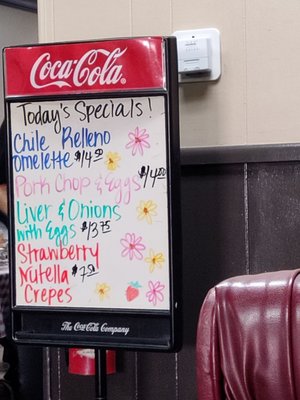 Coca-Cola
Today's Specials!
Chile Relleno
omelette $14.50
Pork Chop & Eggs $14.20
Liver & Onions
with Eggs $13.75
Strawberry
Nutella $7.50
Crepes
The Coca-Cola Company